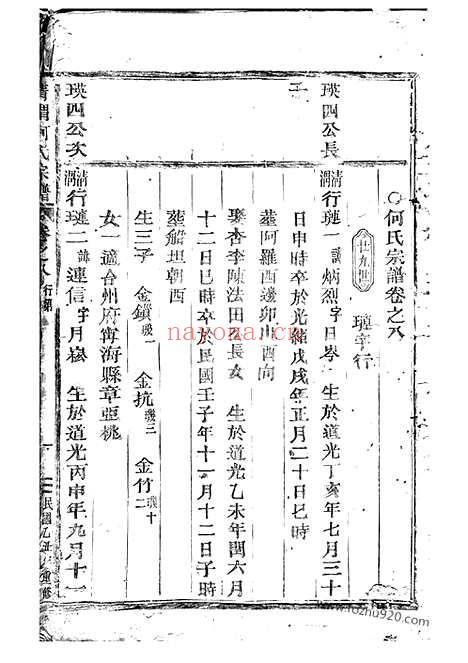 何氏宗譜卷之八
廿九世 璉字行
瑛四公長子
清渭行璉一諱炳烈字日㟧 生於道光丁亥年七月三十
日申時卒於光緒戊戌年正月二十日巳時
葬阿羅西邊卯山酉向
娶杏李陳法田公長女 生於道光乙未年閏六月
十二日巳時卒於民國壬子年十一月十二日子時
葬鮨坦朝西
生三子 金鎖璣一 金抗璣三 金竹璣十二
女一適台州府寧海縣章亞桃
瑛四公次
清渭行璉二諱連信字月㟧 生於道光丙申年九月十一
清渭何氏宗譜 卷之八 行第
民國乙丑年重修
nayona.cn
www.fozhu920.com